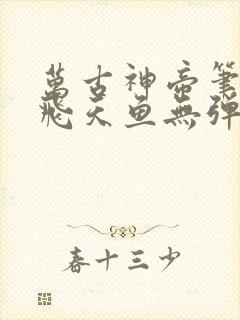 萬古神帝筆
飛天魚無彈
春十三少